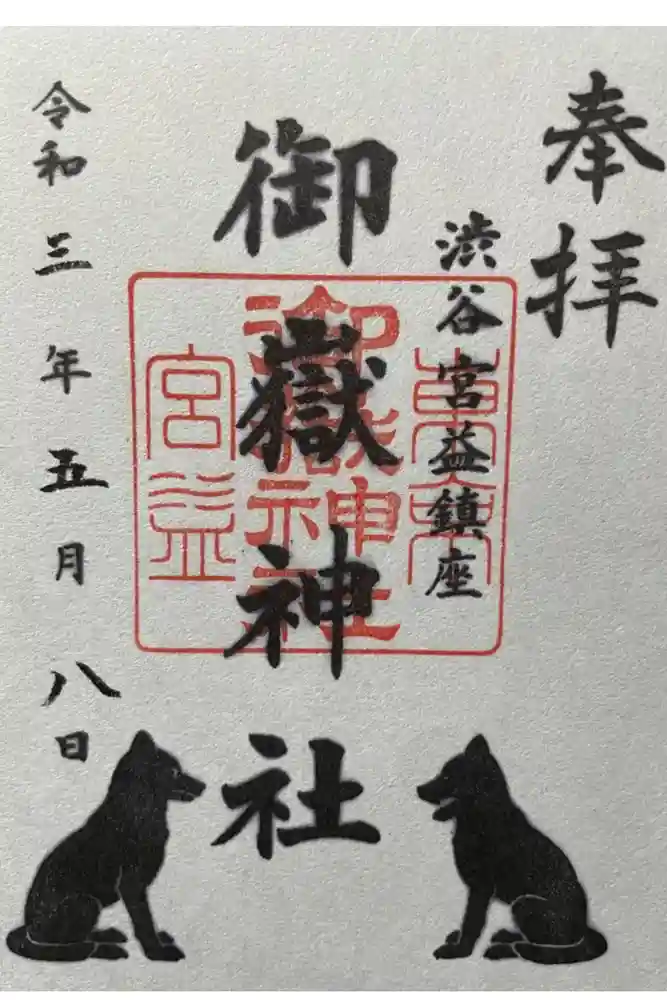 奉拝
渋谷宮益鎮座
御嶽神社
令和三年五月八日
東京
御嶽神社
宮益